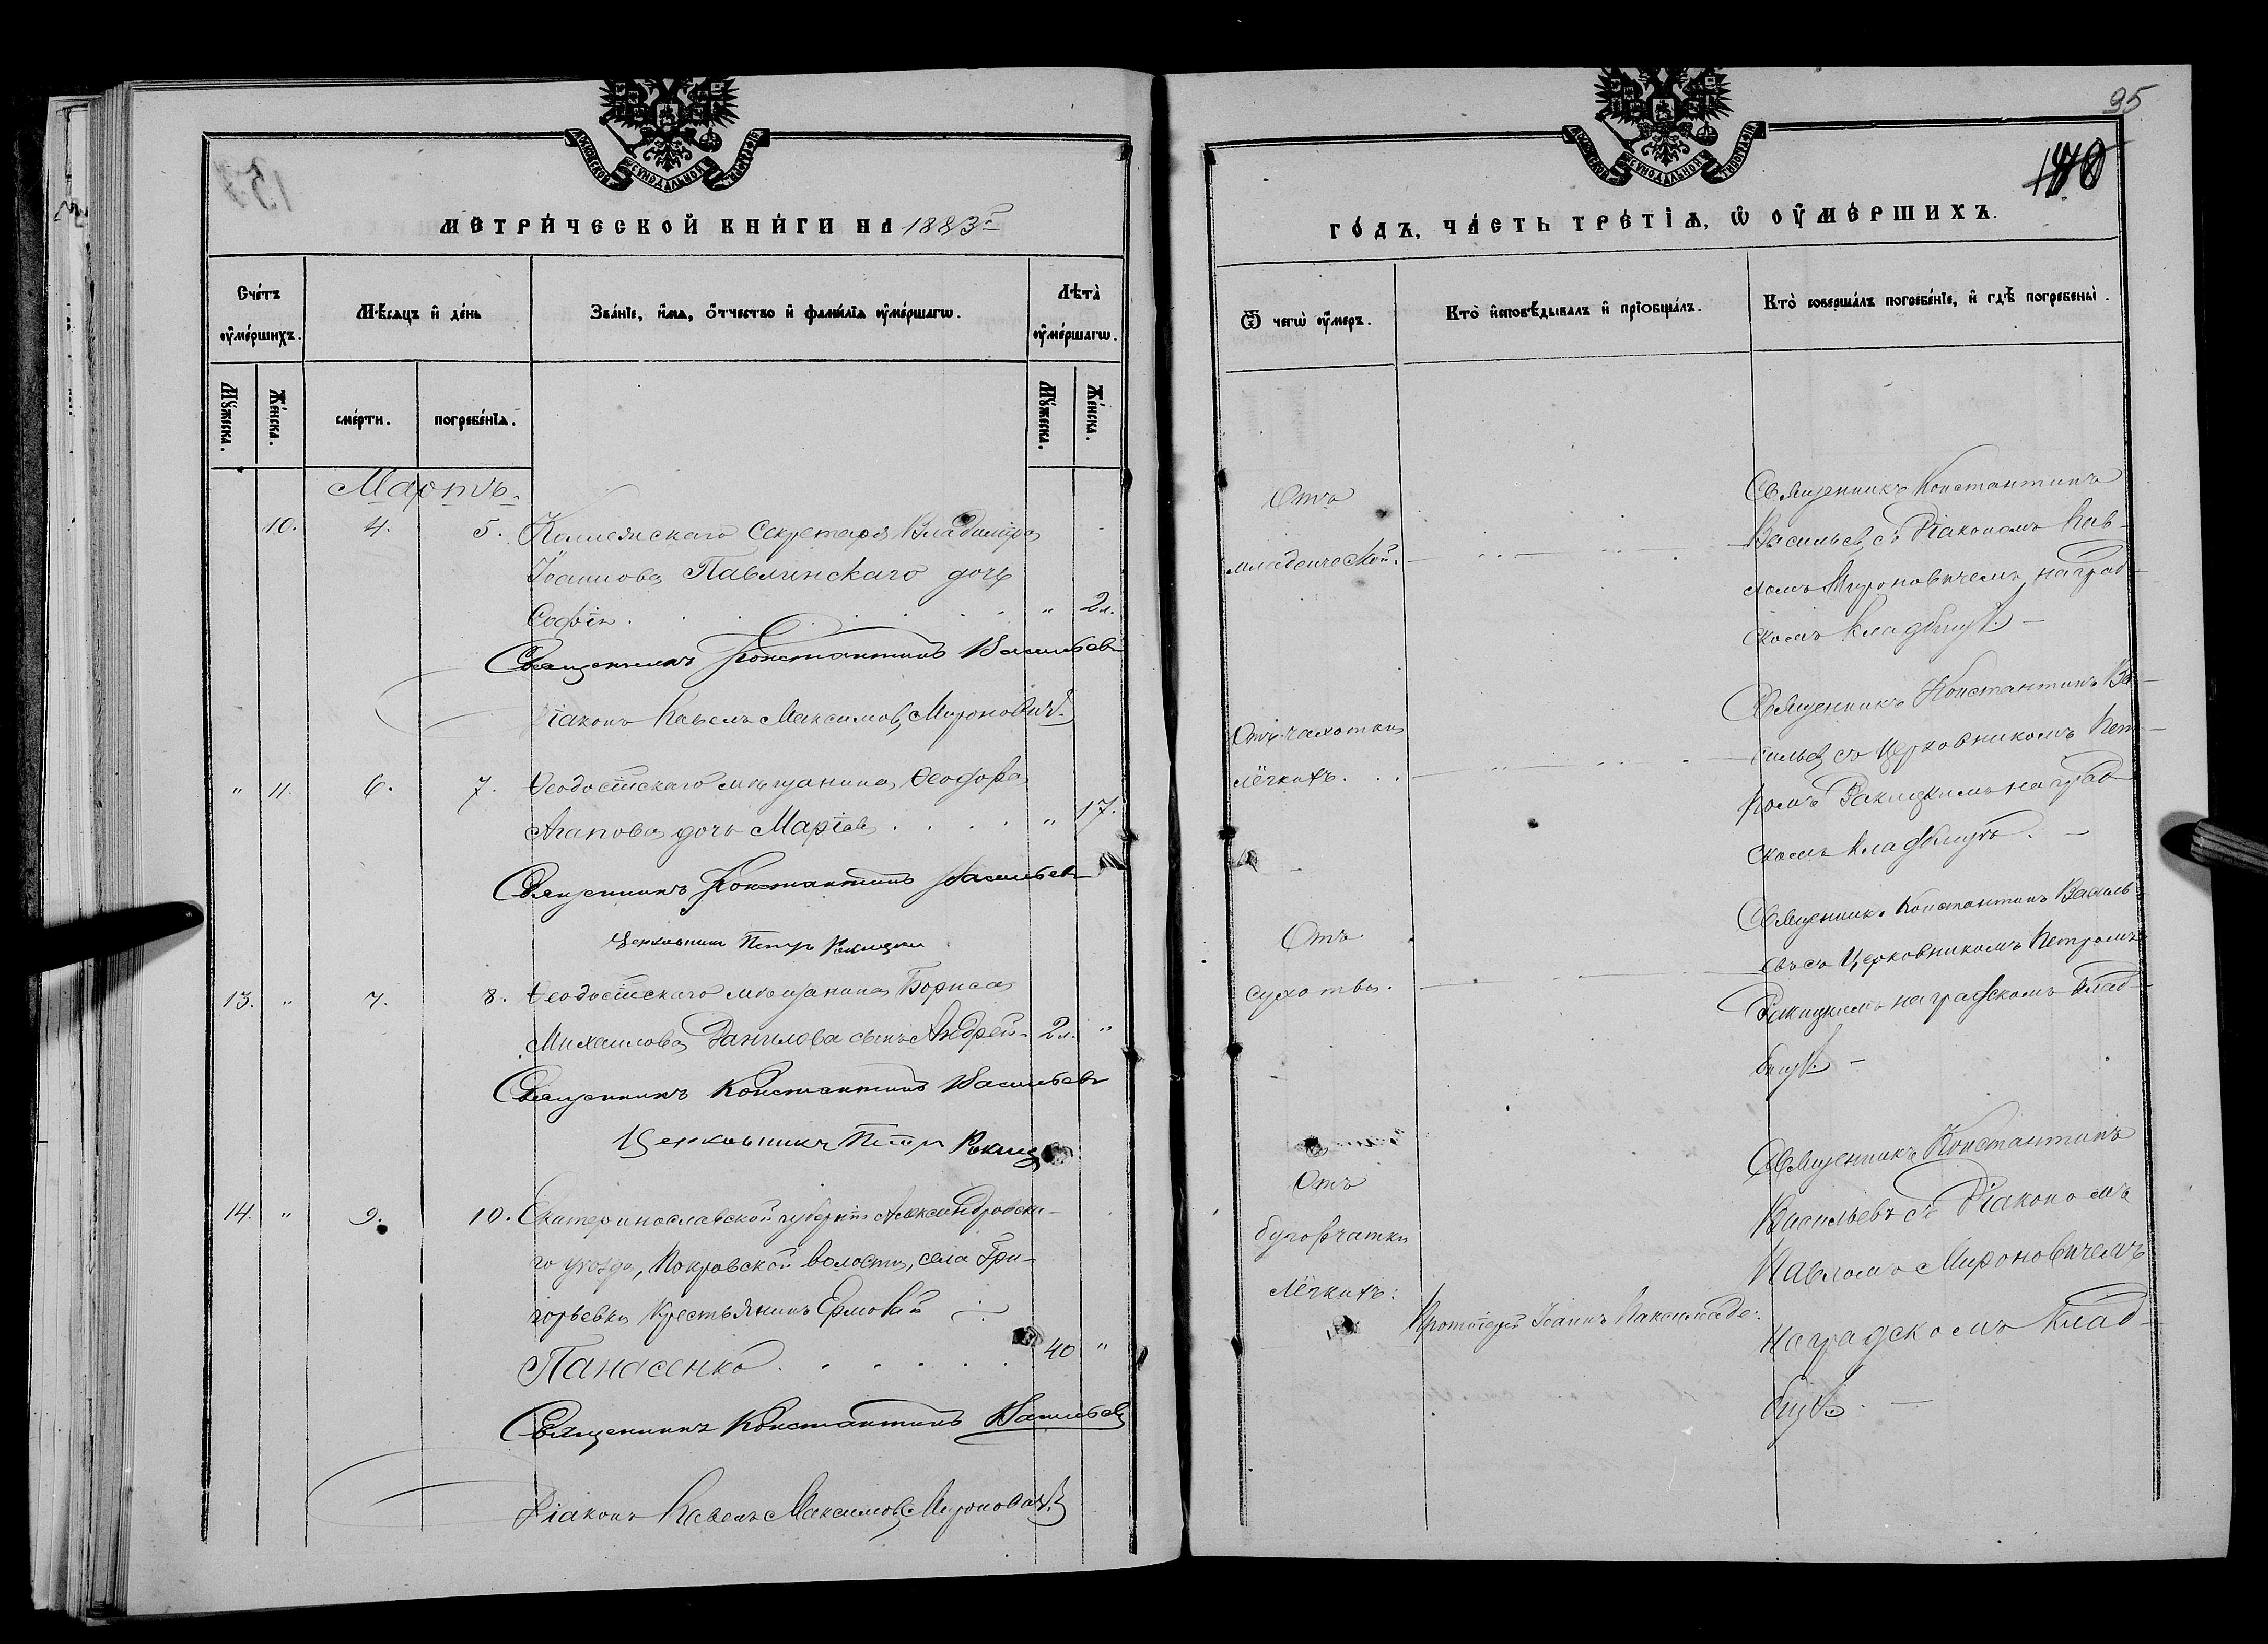 95
140
МЕТРИЧЕСКОЙ КНИГИ НА 1883 г.
ГОДЪ, ЧАСТЬ ТРЕТІѦ, Ѿ ОУМЕРШИХЪ.
Счетъ оумершихъ.
Мѣсяцъ и день
Званіе, имя, отчество и фамилія оумершагѡ.
Лѣта оумершагѡ.
Ѿ чегѡ оумеръ.
Кто исповѣдывалъ и пріобщалъ.
Кто совершалъ погребеніе, и гдѣ погребены.
Мужеска.
Женска.
смерти.
погребенія.
Мужеска.
Женска.
Мартъ.
10. 4. 5. Коллежскаго Секретаря Владиміра
Іоаннова Павлинскаго дочь
Софія . . . . . " 2 л.
Священникъ Константинъ Васильевъ
Діаконъ Павелъ Максимовъ Мироновичъ.
Отъ
младенческой.
Священникъ Константинъ
Васильевъ съ Діакономъ Пав-
ломъ Мироновичемъ на град-
скомъ кладбищѣ. —
" 11. 6. 7. Ѳеодосійскаго мѣщанина Ѳеодора
Агапова дочь Марія . . . . " 17.
Священникъ Константинъ Васильевъ
Церковникъ Петръ Ракицкій
Отъ чахотки
лёгкихъ.
Священникъ Константинъ Ва-
сильевъ съ Церковникомъ Пет-
ромъ Ракицкимъ на град-
скомъ кладбищѣ. —
13. " 7. 8. Ѳеодосійскаго мѣщанина Бориса
Михаилова Данилова сынъ Андрей 2 л. "
Священникъ Константинъ Васильевъ
Церковникъ Петръ Ракицкій
Отъ
сухотки.
Священникъ Константинъ Василь-
евъ съ Церковникомъ Петромъ
Ракицкимъ на градскомъ клад-
бищѣ. —
14. " 9. 10. Екатеринославской губерніи Александровска-
го уѣзда, Покровской волости, села Гри-
горьевки крестьянинъ Ермолай
Панасенко . . . . . 40 "
Священникъ Константинъ Васильевъ
Діаконъ Павелъ Максимовъ Мироновичъ.
Отъ
бугорчатки
лёгкихъ.
Протоіерей Іоаннъ
Священникъ Константинъ
Васильевъ съ Діакономъ
Павломъ Мироновичемъ
на градскомъ клад-
бищѣ. —